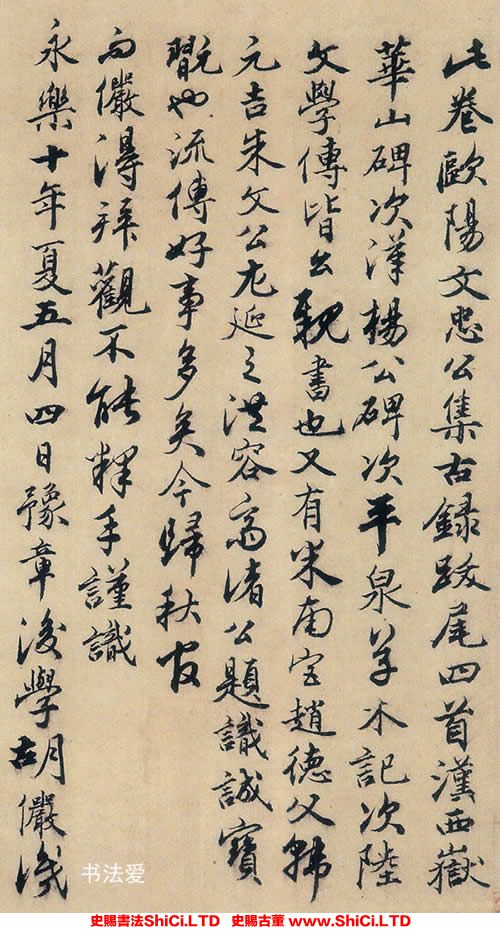 此卷歐陽文忠公集古録跋尾四首漢西嶽
華山碑次漢楊公碑次平泉草木記次陸
文學傳皆公親書也又有米南宮趙德父韓
元吉朱文公尤延之洪容齋諸公題識誠寶
翫也流傳好事多矣今歸秋官
而儼得拜觀不能釋手謹識
永樂十年夏五月四日豫章後學胡儼識
书法爱
史賜書法ShiCi.LTD 史賜古董 www.ShiCi.LTD